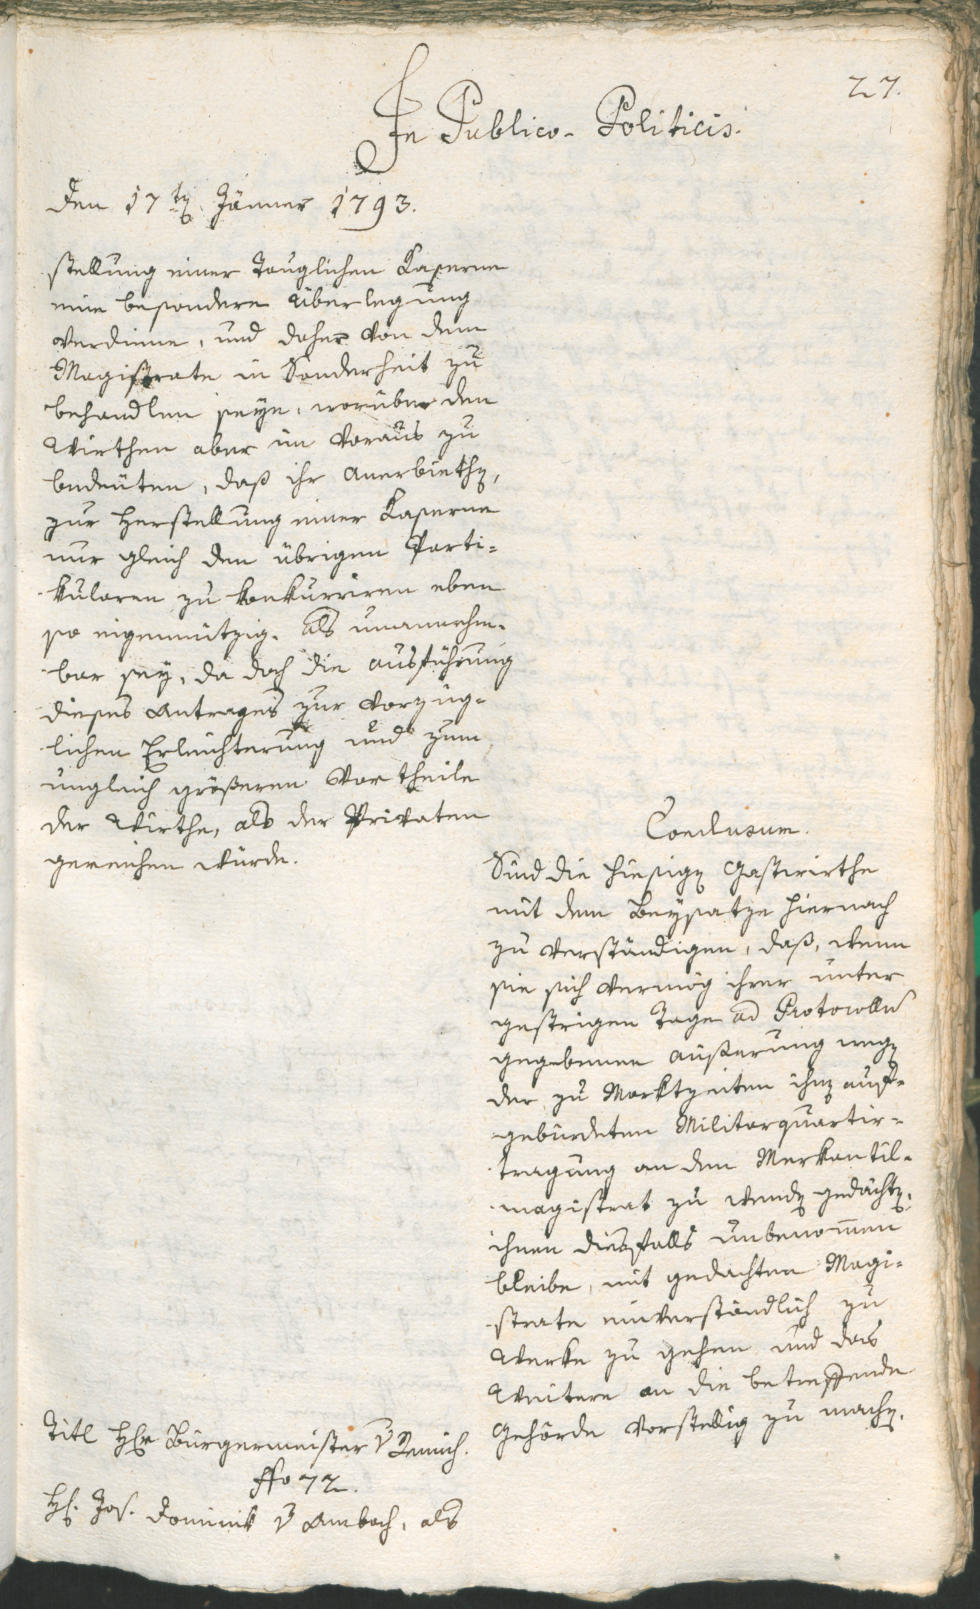 27.
In Publico-Politicis.
Den 17t. Jänner 1793.
stellung einer tauglichen Caserne
eine besondere Überlegung
verdiene, und daher von dem
Magistrate in Sonderheit zu
behandlen seye, worüber den
Wirthen aber im voraus zu
bedeuten, daß ihr Anerbieth,
zur Herstellung einer Caserne
nur gleich den übrigen Parti-
kularen zu konkurriren eben
so eigennützig, als unannehm-
bar sey, da doch die Ausführung
dieses Antrages zur vorzüg-
lichen Erleichterung und zum
ungleich größeren Vortheile
der Wirthe, als der Privaten
gereichen würde.
Conclusum.
Sind die hiesig Gastwirthe
mit dem Beysatze hiernach
zu verständigen, daß, wenn
sie sich vermög ihrer unter
gestrigen Tage ad Protocollu
gegebenen Äußerung weg
der zu Marktzeiten ihn auf-
gebürdeten Militarquartir-
tragung an den Merkantil-
magistrat zu wend gedächt,
ihnen diesfalls unbenommen
bleibe, mit gedachten Magi-
strate einverständlich zu
Werke zu gehen und das
Weitere an die betreffende
Gehörde vorstellig zu mach.
Titl H Bürgermeister v
ffo 72.
H. Jos. Dominik v Ambach, als